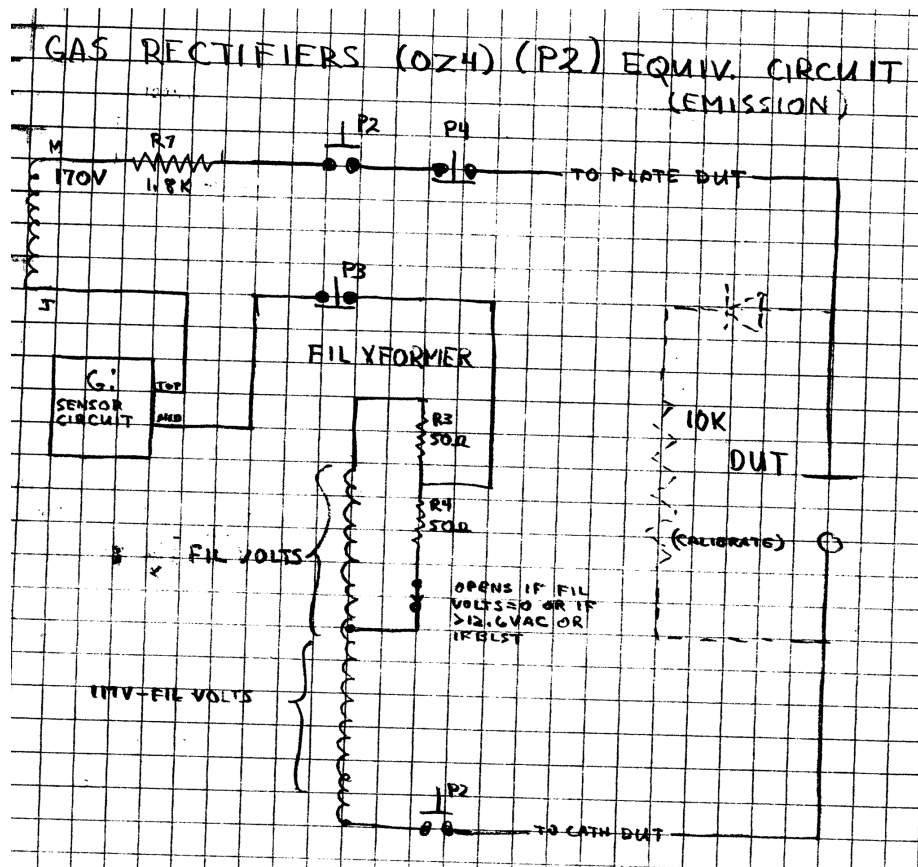 GAS RECTIFIERS (OZ4) (P2) EQUIV. CIRCUIT
(EMISSION)
M
170V
R7
1.8K
P2
P4
TO PLATE DUT
P3
FIL XFORMER
G:
SENSOR
CIRCUIT
TOP
R3
50Ω
10K
DUT
R4
50Ω
(CALIBRATE)
FIL VOLTS
OPENS IF FIL
VOLTS=0 OR IF
>12.6VAC OR
IF BLST
117V-FIL VOLTS
P2
TO CATH DUT